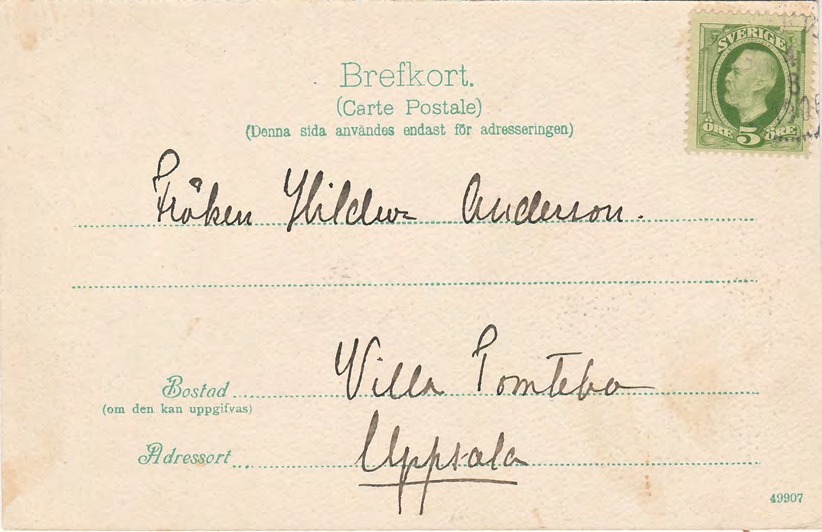 SVERIGE
ÖRE 5 ÖRE
Brefkort.
(Carte Postale)
(Denna sida användes endast för adresseringen)
Fröken Hildur Anderson.
Villa Tomtebo
Bostad
(om den kan uppgifvas)
Adressort Uppsala
49907